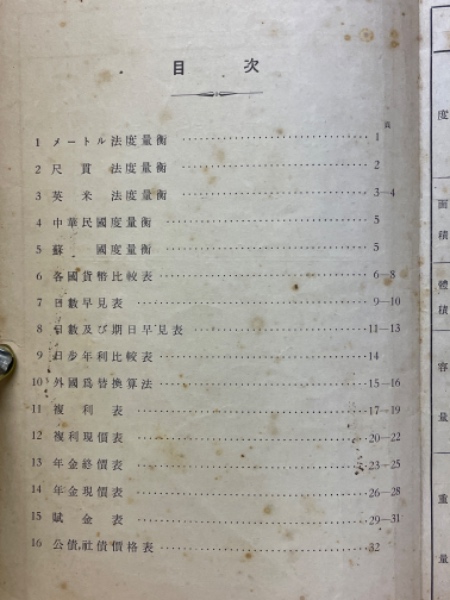 目次
頁
1 メートル法度量衡 …… 1
2 尺貫法度量衡 …… 2
3 英米法度量衡 …… 3—4
4 中華民國度量衡 …… 5
5 蘇國度量衡 …… 5
6 各國貨幣比較表 …… 6—8
7 日數早見表 …… 9—10
8 日數及び期日早見表 …… 11—13
9 日步年利比較表 …… 14
10 外國爲替換算法 …… 15—16
11 複利表 …… 17—19
12 複利現價表 …… 20—22
13 年金終價表 …… 23—25
14 年金現價表 …… 26—28
15 賦金表 …… 29—31
16 公債,社債價格表 …… 32
度
面積
體積
容量
重量